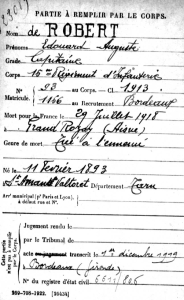 PARTIE À REMPLIR PAR LE CORPS.
Nom de ROBERT
Prénoms Edouard Auguste
Grade Capitaine
Corps 15me Régiment d'Infanterie
N° 23 au Corps. — Cl. 1913.
Matricule. 1166 au Recrutement Bordeaux
Mort pour la France le 29 Juillet 1918
à Grand Rozoy (Aisne)
Genre de mort Tué à l'ennemi
Né le 11 Février 1893
à St Amand Valtoret Département Tarn
Arrt municipal (pr Paris et Lyon),
à défaut rue et N°.
Cette partie
n'est pas à remplir
par le Corps.
Jugement rendu le
par le Tribunal de
acte ou jugement transcrit le 1er décembre 1919
à Bordeaux (Gironde)
N° du registre d'état civil